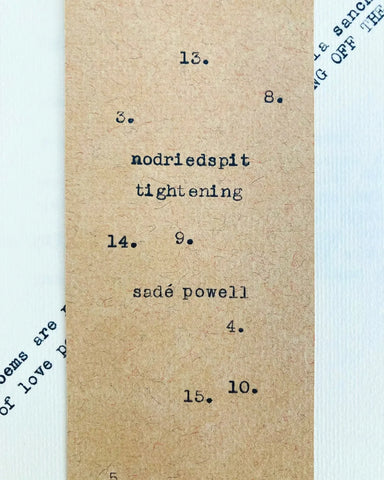 13.
8.
3.
nodriedspit
tightening
14. 9.
sadé powell
4.
15. 10.
5
NG OFF THE
oems are
of love